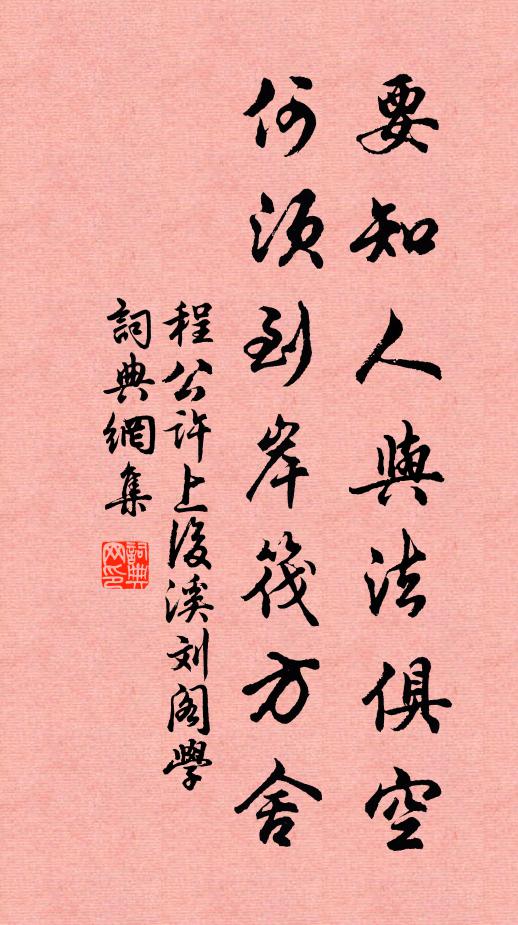 要知人與法俱空
何須到岸筏方舍
程公許上後溪刘阁學
詞典網集
詞典网印